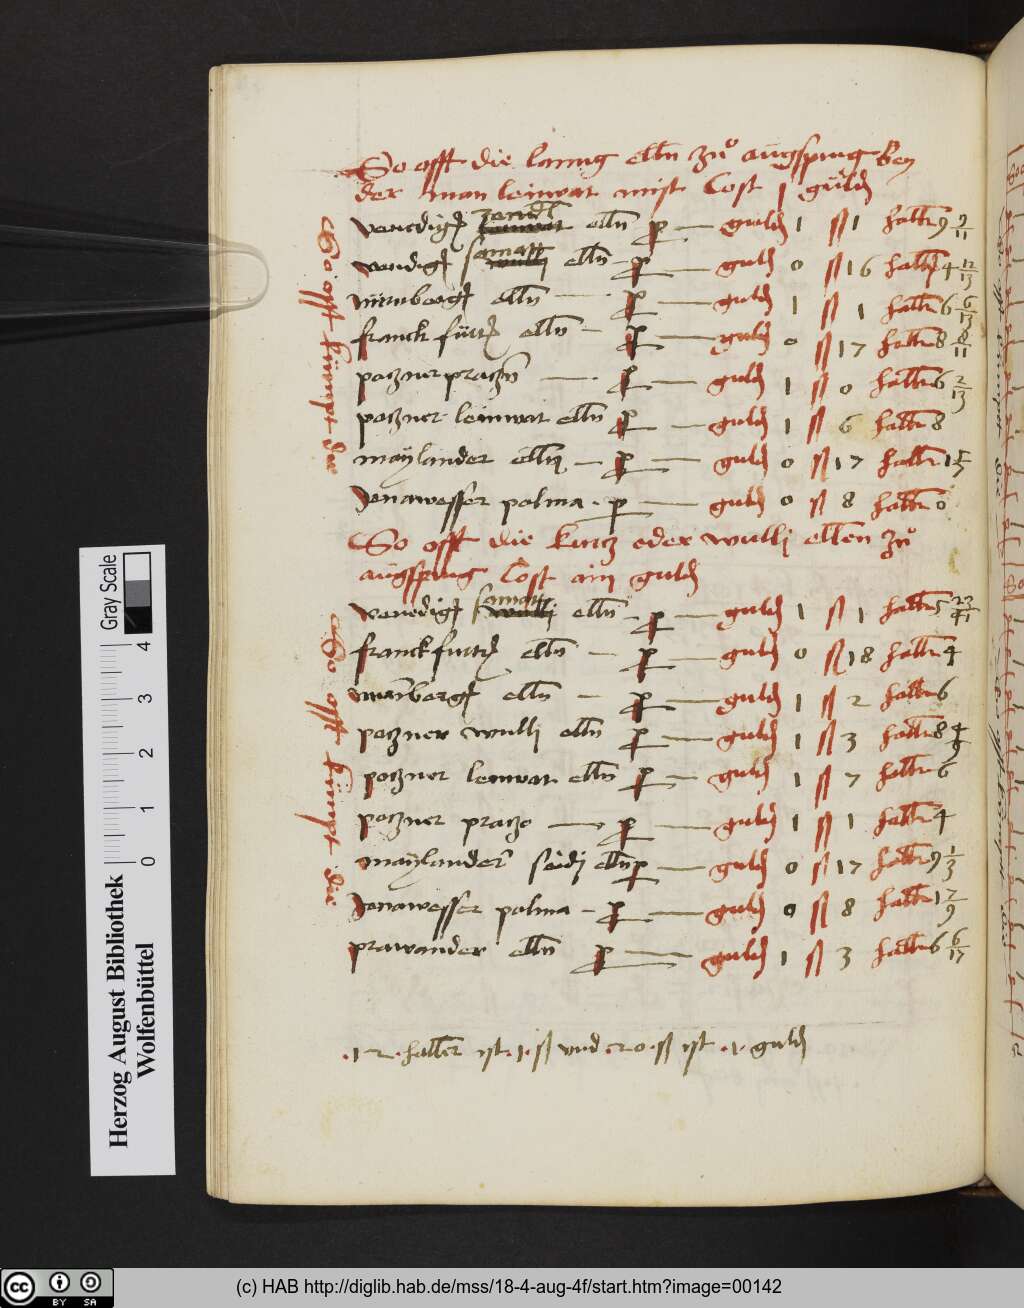 So offt die lanng elln zů augspurg bey
der man leinwat mist Cost 1 guld
So offt kumpt die
venedigisch zendl elln per guld 1 ß 1 haller 9 9/11
venedigisch samatt elln per guld 0 ß 16 haller 4 12/13
nürmbergisch elln per guld 1 ß 1 haller 6 6/13
franckfürtt elln per guld 0 ß 17 haller 8 8/11
pozner praczen per guld 1 ß 0 haller 6 2/13
pozner leinwat elln per guld 1 ß 6 haller 8
maylander elln per guld 0 ß 17 haller 1 5/7
Jenawesser palma per guld 0 ß 8 haller 0
So offt die kurtz oder wulli ellen zů
augspurg Cost ain guld
So offt kumpt die
venedigisch samatt elln per guld 1 ß 1 haller 5 23/41
franckfurtt elln per guld 0 ß 18 haller 4
nurmbergisch elln per guld 1 ß 2 haller 6
pozner wulli elln per guld 1 ß 3 haller 8 4/9
pozner leinwat elln per guld 1 ß 7 haller 6
pozner praczo per guld 1 ß 1 haller 4
maylander seidi elln per guld 0 ß 17 haller 9 1/3
Jenawesser palma per guld 0 ß 8 haller 1 7/9
prawander elln per guld 1 ß 3 haller 6 6/17
.12. haller ist .1. ß vnd .20. ß ist .1. guld
Gray Scale
0 1 2 3 4
Herzog August Bibliothek
Wolfenbüttel
cc BY SA
(c) HAB http://diglib.hab.de/mss/18-4-aug-4f/start.htm?image=00142